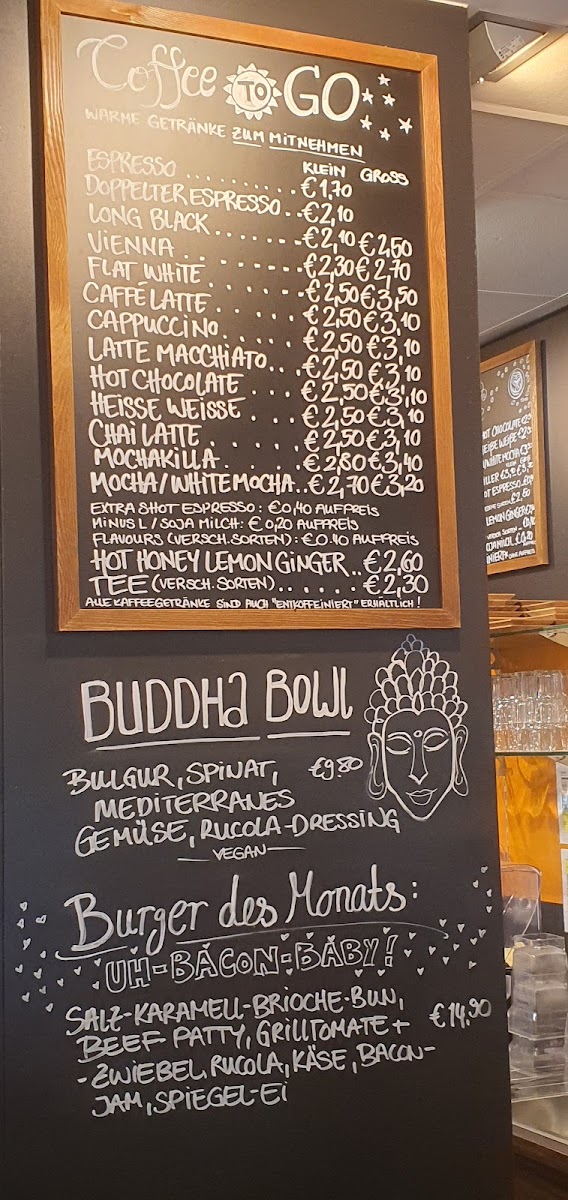 Coffee TO GO
WARME GETRÄNKE ZUM MITNEHMEN
KLEIN GROSS
ESPRESSO .......... €1,70
DOPPELTER ESPRESSO .. €2,10
LONG BLACK ....... €2,10 €2,50
VIENNA ....... €2,30 €2,70
FLAT WHITE ....... €2,50 €3,50
CAFFÉ LATTE ...... €2,50 €3,10
CAPPUCCINO ...... €2,50 €3,10
LATTE MACCHIATO... €2,50 €3,10
HOT CHOCOLATE .... €2,50 €3,10
HEISSE WEISSE .... €2,50 €3,10
CHAI LATTE ...... €2,50 €3,10
MOCHAKILLA ...... €2,80 €3,40
MOCHA/WHITE MOCHA.. €2,70 €3,20
EXTRA SHOT ESPRESSO: €0,40 AUFPREIS
MINUS L / SOJA MILCH: €0,20 AUFPREIS
FLAVOURS (VERSCH. SORTEN): €0.40 AUFPREIS
HOT HONEY LEMON GINGER .. €2,60
TEE (VERSCH. SORTEN) ...... €2,30
ALLE KAFFEEGETRÄNKE SIND AUCH "ENTKOFFEINIERT" ERHÄLTLICH!
BUDDHA BOWL
BULGUR, SPINAT, €9.80
MEDITERRANES
GEMÜSE, RUCOLA-DRESSING
VEGAN
Burger des Monats:
UH-BACON-BABY!
SALZ-KARAMELL-BRIOCHE-BUN, €14.90
BEEF PATTY, GRILLTOMATE +
-ZWIEBEL, RUCOLA, KÄSE, BACON-
JAM, SPIEGEL-EI
HOT CHOCOLATE
LEMON GINGER